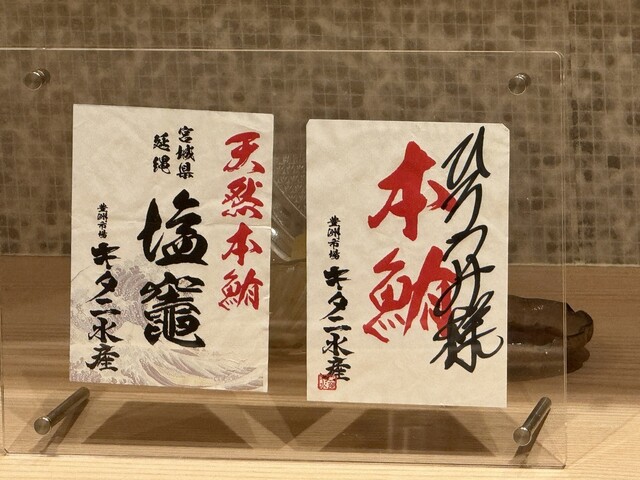 天然本鮪
宮城県
延縄
塩竈
豊洲市場
キタニ水産
本鮪
豊洲市場
キタニ水産